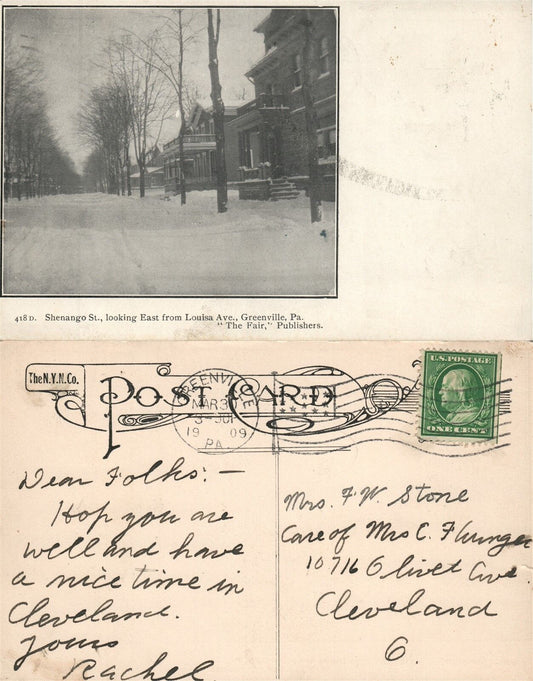 418 D. Shenango St., looking East from Louisa Ave., Greenville, Pa.
"The Fair," Publishers.
The N.Y.N. Co.
POST CARD
GREENVILLE
MAR 3
19 09
PA
U.S. POSTAGE
ONE CENT
Dear Folks: —
Hop you are
well and have
a nice time in
Cleveland.
Yours
Rachel
Mrs. F. W. Stone
Care of Mrs C.
10716 Olivet Ave
Cleveland
O.